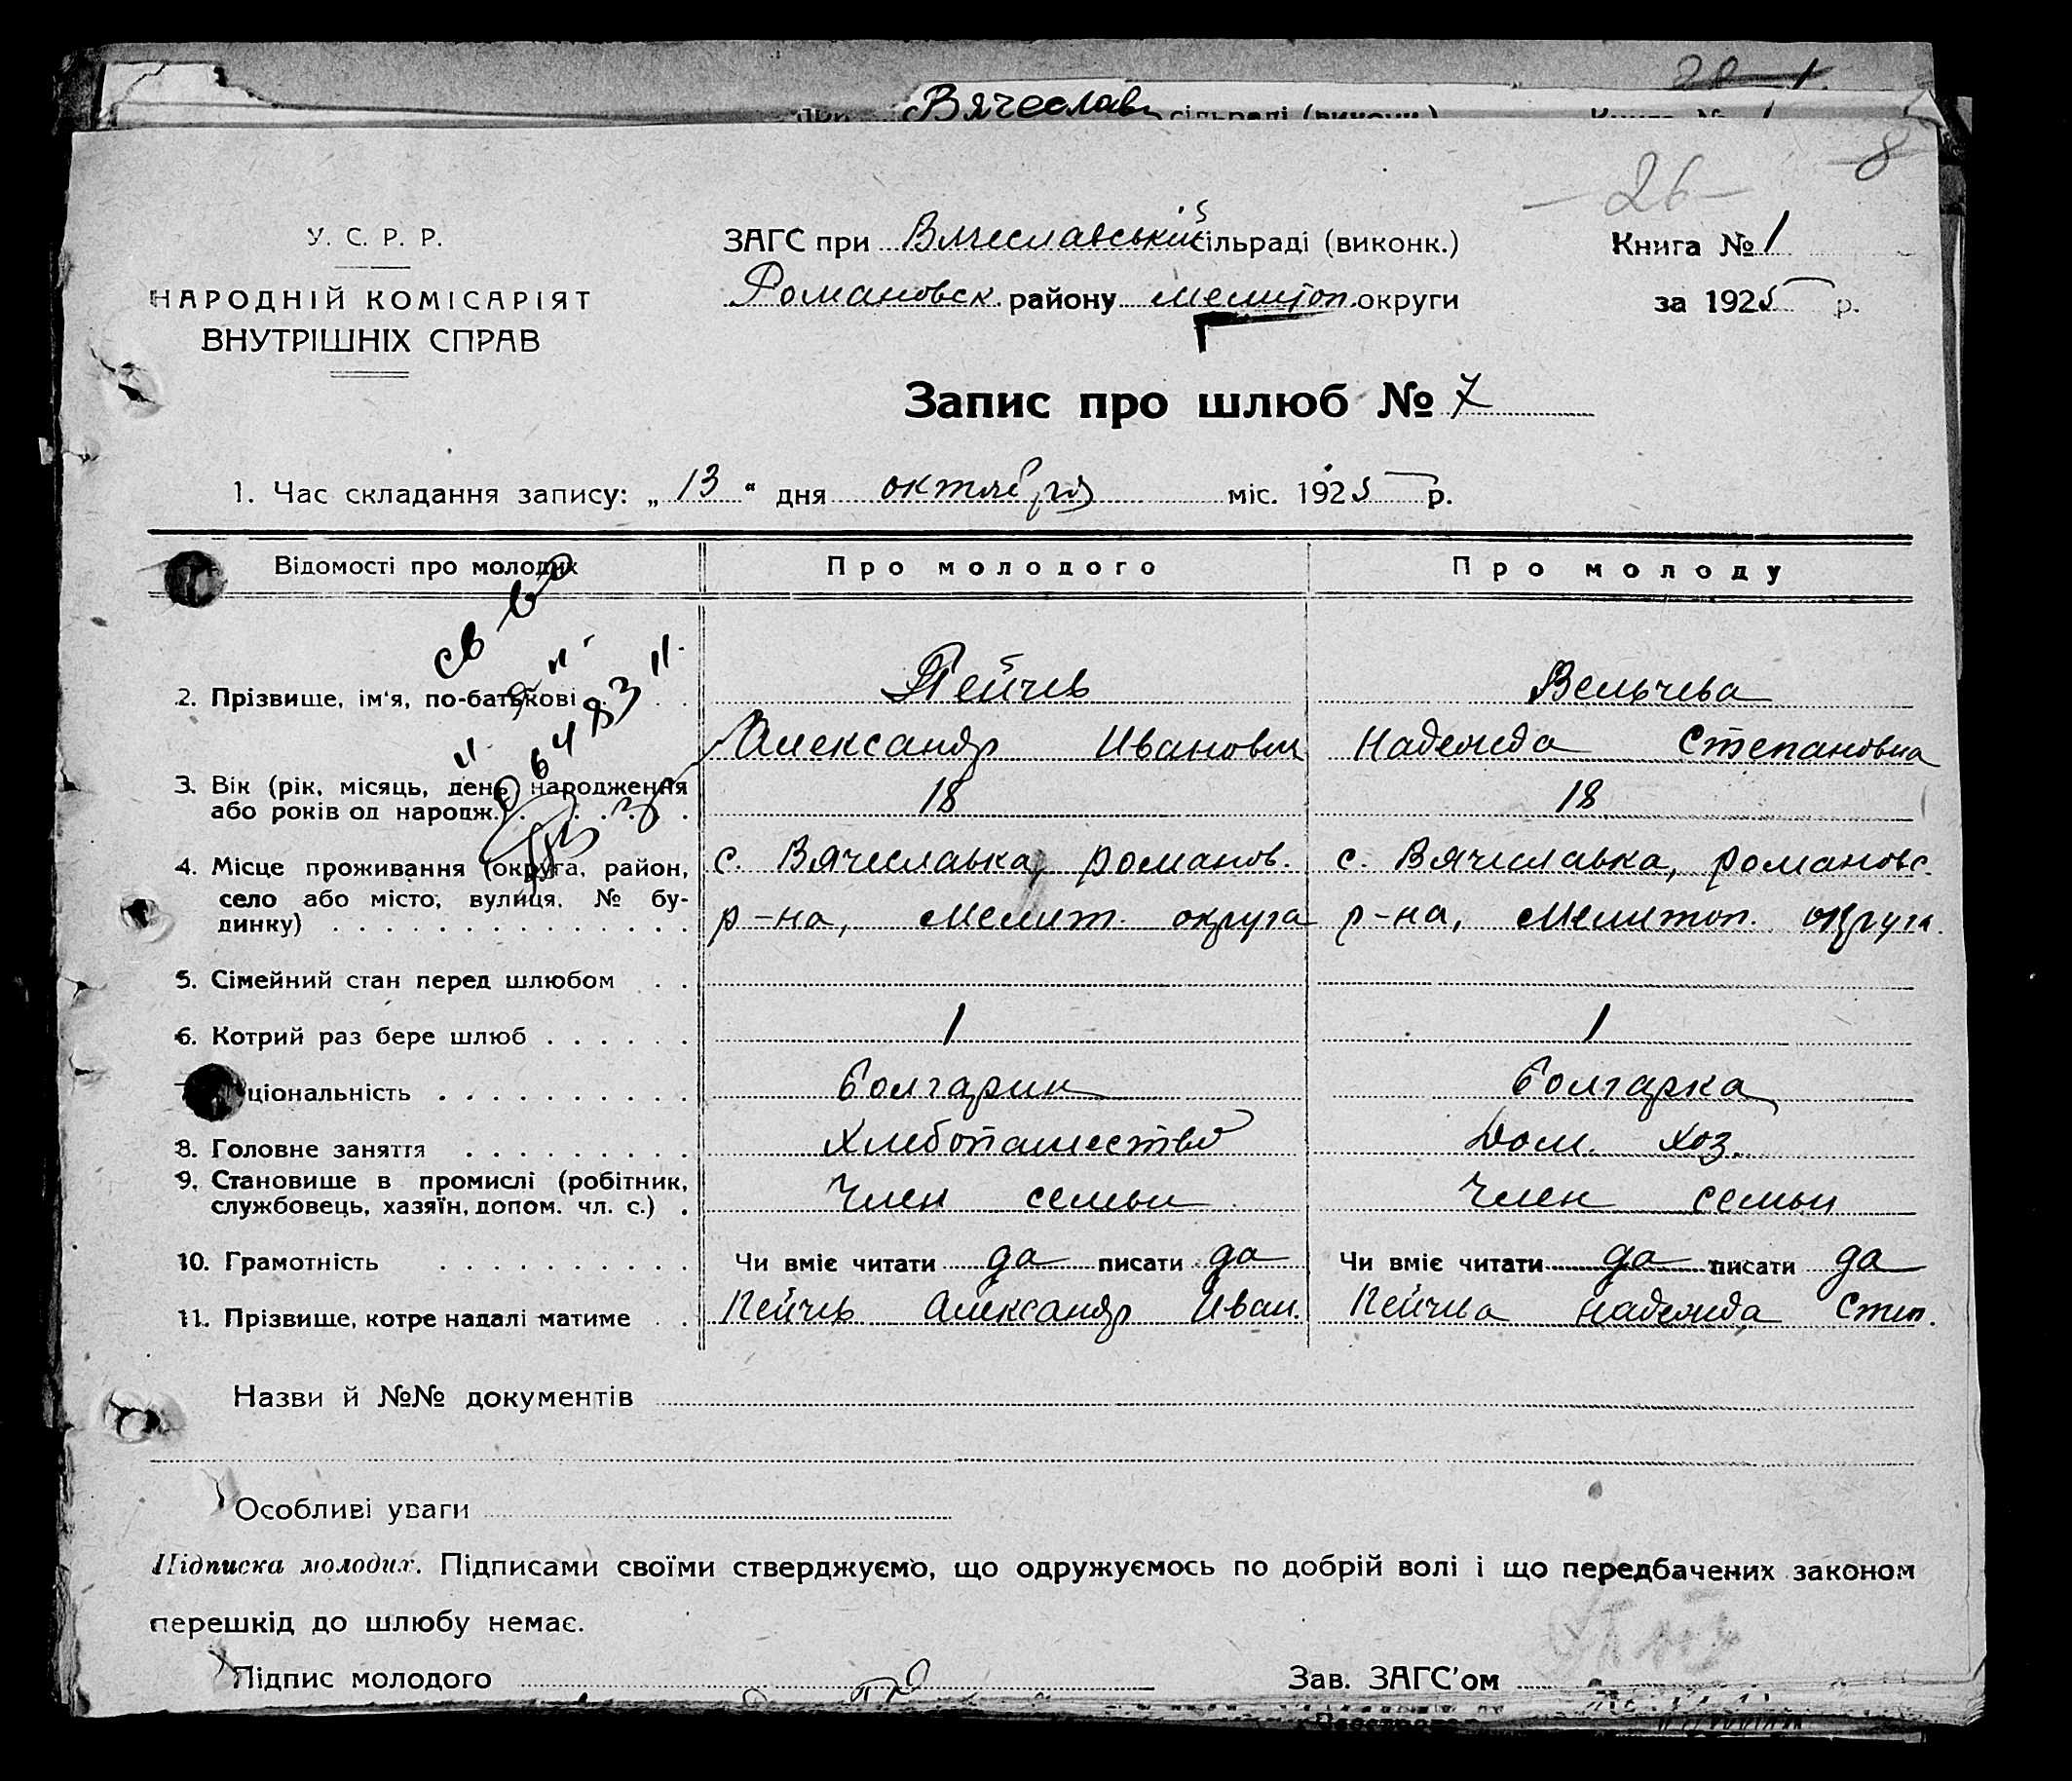 Вячеслав сільраді (виконк.)
8
- 26 -
У. С. Р. Р.
НАРОДНІЙ КОМІСАРІЯТ
ВНУТРІШНІХ СПРАВ
ЗАГС при Вячеславській сільраді (виконк.)
Романовск. району Мелитоп. округи
Книга № 1
за 1925 р.
Запис про шлюб № 7
1. Час складання запису: „ 13 “ дня октября міс. 1925 р.
Відомості про молодих Про молодого Про молоду
2. Прізвище, ім'я, по-батькові . . . Пейчев Вельчева
Александр Иванович Надежда Степановна
3. Вік (рік, місяць, день народження
або років од народж. . . . . . 18 18
4. Місце проживання (округа, район, с. Вячеславка, романов. с. Вячеславка, романовс.
село або місто, вулиця, № бу-
динку) . . . . . . . . . . . . . . . р-на, Мелит. округа р-на, Мелитоп. округа.
5. Сімейний стан перед шлюбом . .
6. Котрий раз бере шлюб . . . . . . 1 1
ціональність . . . . . . . . . . болгарин болгарка
8. Головне заняття . . . . . . . . . Хлебопашество Дом. хоз.
9. Становище в промислі (робітник,
службовець, хазяїн, допом. чл. с.) . Член семьи Член семьи
10. Грамотність . . . . . . . . . . Чи вміє читати да писати да Чи вміє читати да писати да
11. Прізвище, котре надалі матиме . . Пейчев Александр Иван. Пейчева Надежда Степ.
Назви й №№ документів
Особливі уваги
Підписка молодих. Підписами своїми стверджуємо, що одружуємось по добрій волі і що передбачених законом
перешкід до шлюбу немає.
Підпис молодого Зав. ЗАГС'ом